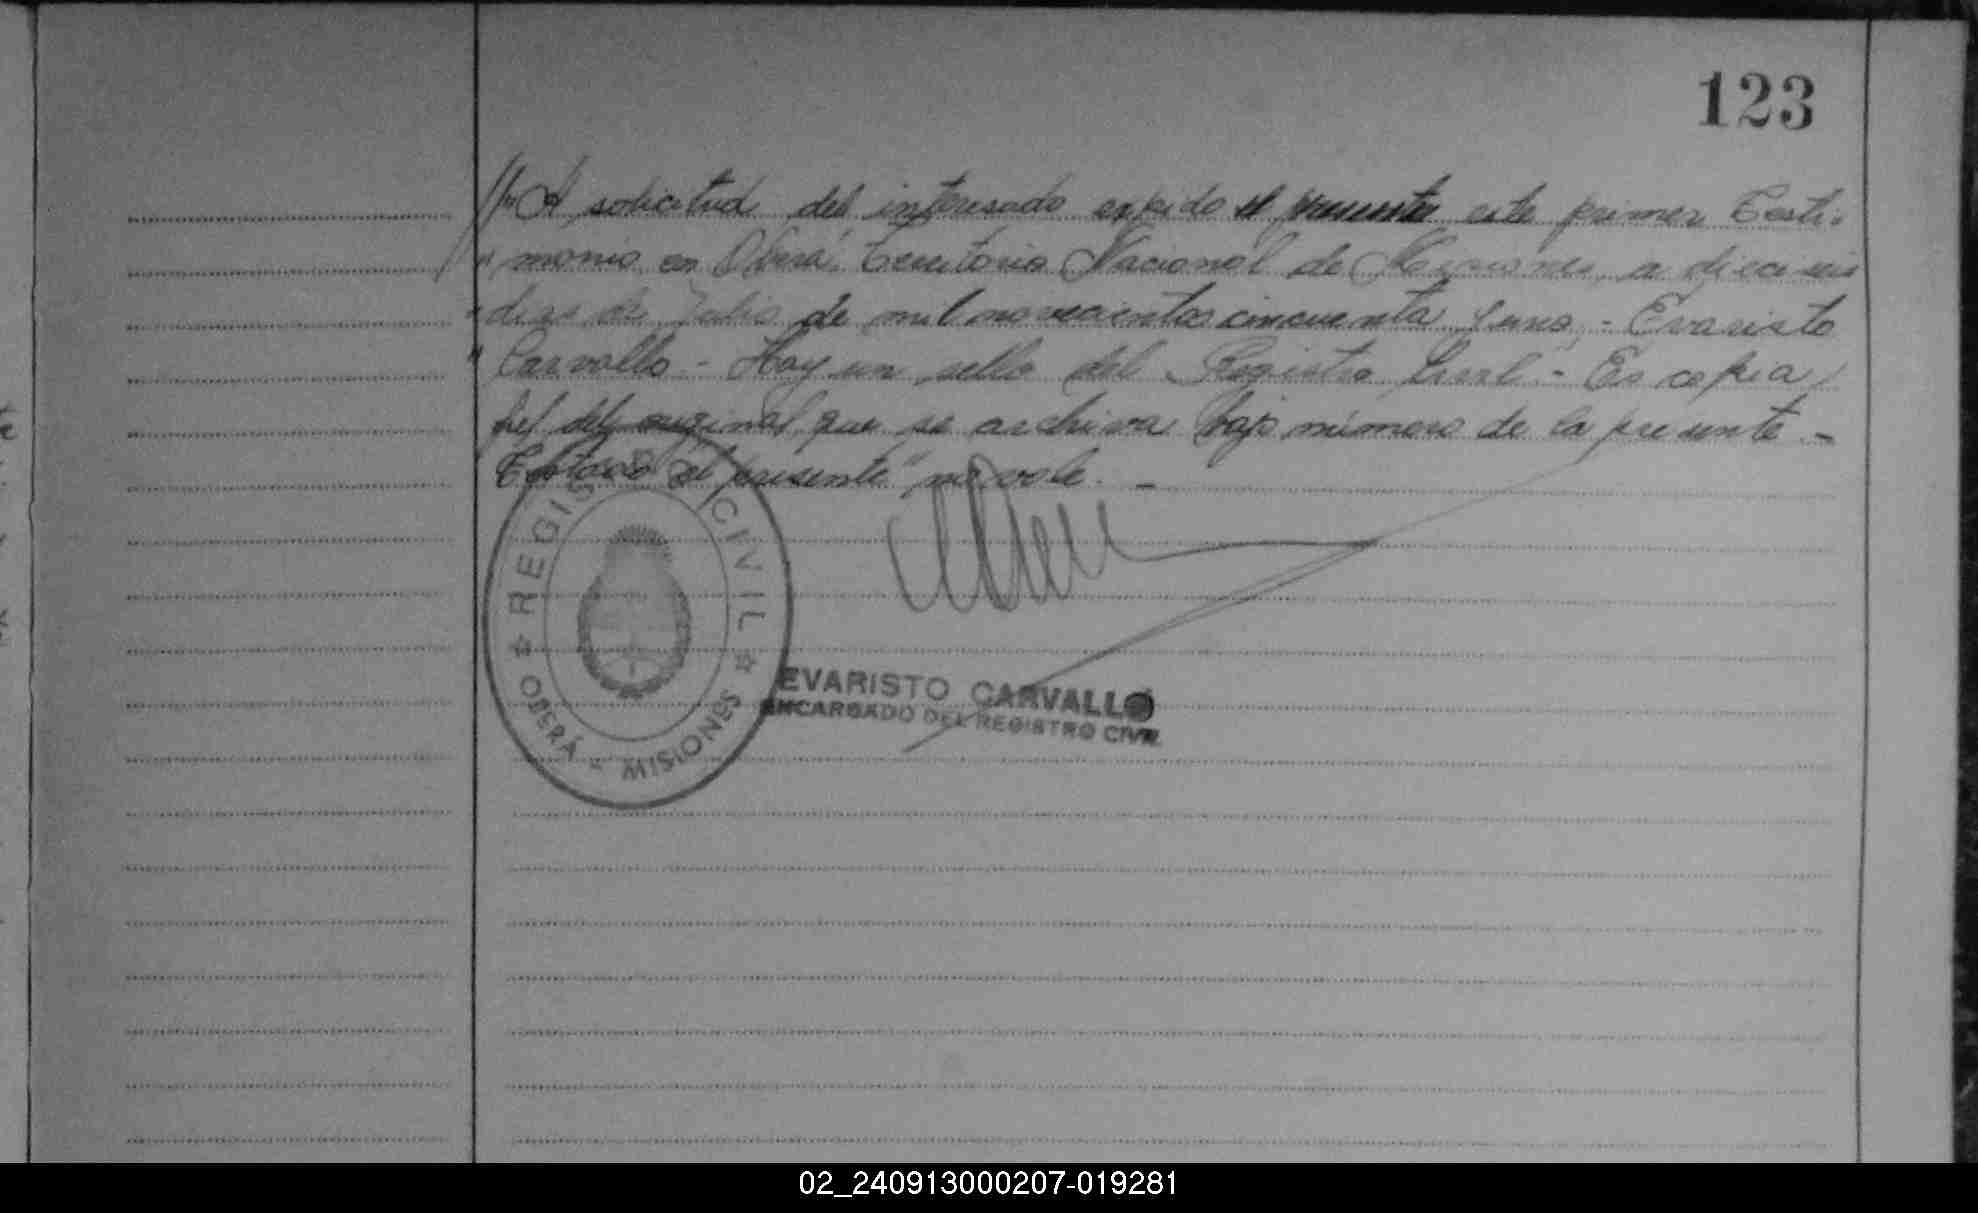 123
//"A solicitud del interesado expido el presente este primer Testi-
" monio en Oberá, Territorio Nacional de Misiones, a dieciseis
" dias de Julio de mil novecientos cincuenta y uno. - Evaristo
" Carvallo - Hay un sello del Registro Civil. - Es copia
fiel del original que se archiva bajo número de la presente. -
Testado "el presente" no vale. -
REGISTRO CIVIL
OBERÁ - MISIONES
EVARISTO CARVALLO
ENCARGADO DEL REGISTRO CIVIL
02_240913000207-019281